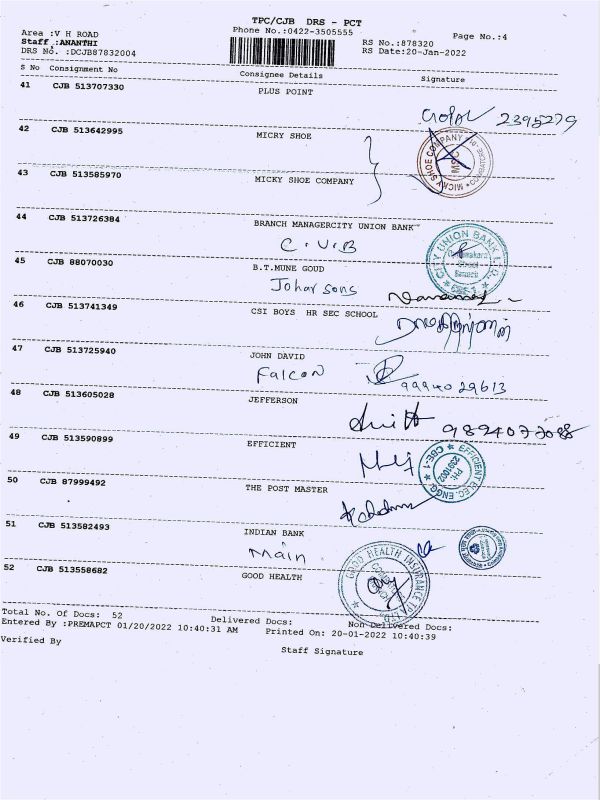 TPC/CJB DRS - PCT
Area :V H ROAD
Phone No.:0422-3505555
Page No.:4
Staff :ANANTHI
RS No.:878320
DRS No. :DCJB87832004
RS Date:20-Jan-2022
S No Consignment No Consignee Details Signature
41 CJB 513707330 PLUS POINT
Gopal 2395279
42 CJB 513642995 MICRY SHOE
MICKY SHOE COMPANY
43 CJB 513585970 MICKY SHOE COMPANY
44 CJB 513726384 BRANCH MANAGERCITY UNION BANK
C.U.B
CITY UNION BANK LTD.
45 CJB 88070030 B.T.MUNE GOUD
Johar sons
46 CJB 513741349 CSI BOYS HR SEC SCHOOL
47 CJB 513725940 JOHN DAVID
Falcon 9994029613
48 CJB 513605028 JEFFERSON
49 CJB 513590899 EFFICIENT
EFFICIENT ELEC. ENGG. CBE-1
50 CJB 87999492 THE POST MASTER
51 CJB 513582493 INDIAN BANK
Main
52 CJB 513558682 GOOD HEALTH
GOOD HEALTH INSURANCE
Total No. Of Docs: 52 Delivered Docs: Non Delivered Docs:
Entered By :PREMAPCT 01/20/2022 10:40:31 AM Printed On: 20-01-2022 10:40:39
Verified By Staff Signature